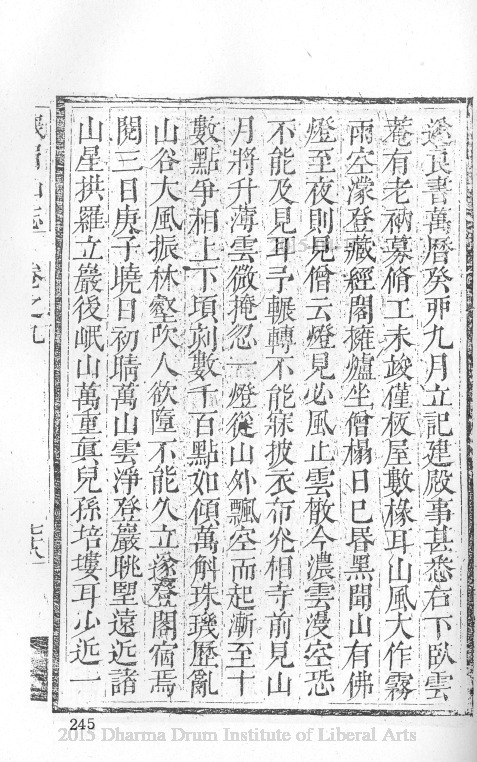 遂良書萬曆癸卯九月立記建殿事甚悉右下臥雲
菴有老衲募脩工未竣僅板屋數椽耳山風大作霧
雨空濛登藏經閣擁爐坐僧榻日已昏黑聞山有佛
燈至夜則見僧云燈見必風止雲散今濃雲漫空恐
不能及見耳予輾轉不能寐披衣布光相寺前見山
月將升薄雲微掩忽一燈從山外飄空而起漸至十
數點爭相上下頃刻數千百點如傾萬斛珠璣歷亂
山谷大風振林壑吹人欲墮不能久立遂登閣宿焉
閱三日庚子曉日初晴萬山雲淨登巖眺朢遠近諸
山星拱羅立巖後岷山萬重眞兒孫培塿耳少近一
峨眉山志 卷之九
七六
245
2015 Dharma Drum Institute of Liberal Arts